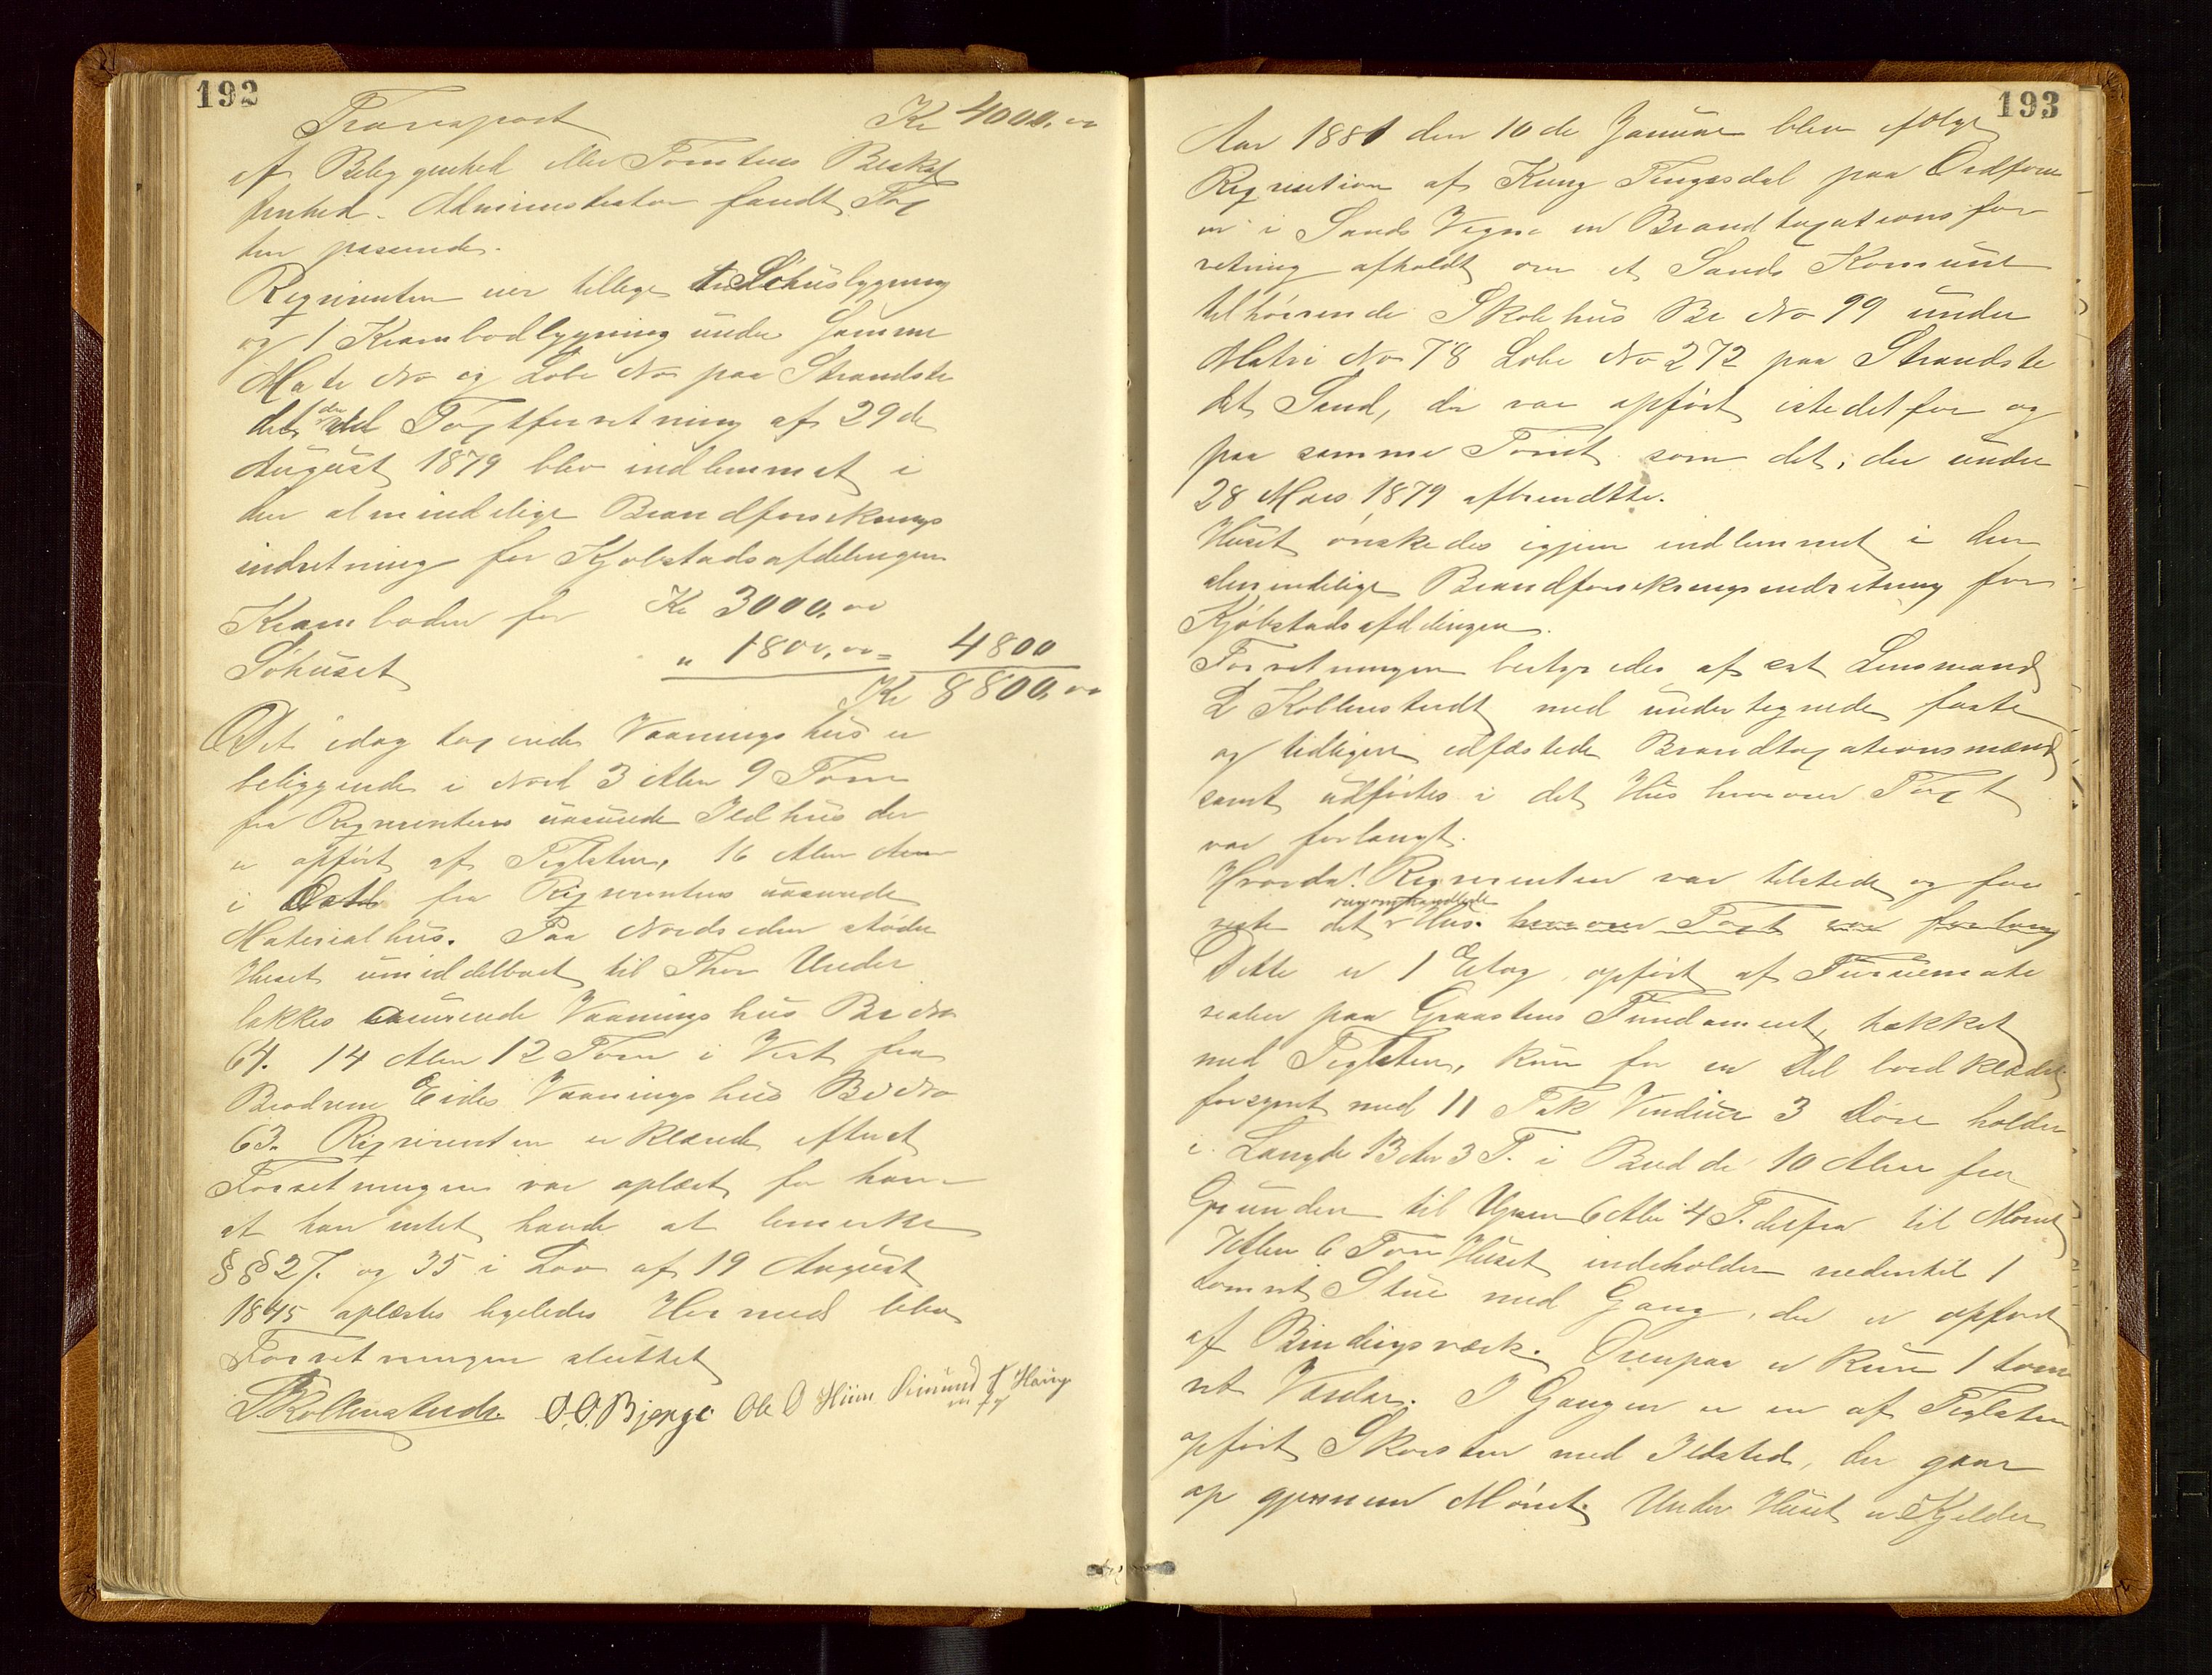 192
Transport Kr 4000.00
af Beliggenhed eller Tomtens Beskaf
fenhed. Administrator fandt Tax
ten passende.
Reqvirenten eier tillige 1 Söhusbygning
og 1 Krambodbygning under samme
Matr No og Löbe No paa Strandste
det, der ved Taxtforretning af 29de
August 1879 blev indlemmet i
den almindelige Brandforsikrings
indretning for Kjøbstadsafdelingen
Kramboden for Kr 3000,00
Söhuset " 1800,00 = 4800
Kr 8800,00
Det idag taxerede Vaaningshus er
beliggende i Nord 3 Alen 9 Tom
fra Reqvirentens uasurede Ildhus der
er opfört af Teglsten, 16 Alen
i Öst fra Reqvirentens uasurede
Materialhus. Paa Nordsiden støder
Huset umiddelbart til Thor Under
bakkes asurerede Vaaningshus Br No
64. 14 Alen 12 Tom i Vest fra
Brødrene Eides Vaaningshus Br No
63. Reqvirenten erklærede efterat
Forretningen var oplæst for ham
at han intet havde at bemerke
§§ 27. og 35 i Lov af 19 August
1845 oplæstes ligeledes Hermed blev
Forretningen sluttet
L Kollenstedt. O. O. Bjerge Ole O Hiim
193
Aar 1881 den 10de Januar blev ifølge
Reqvisition af Tengesdal paa Ordföre
ren i Sands Vegne en Brandtaxationsfor
retning afholdt over et Sands Komune
tilhörende Skolehus Br No 99 under
Matr No 78 Löbe No 272 paa Strandste
det Sand, der var opfört istedetfor og
paa samme Tomt som det, der under
28 Mars 1879 afbrendtte.
Huset önskedes igjen indlemmet i den
almindelige Brandforsikringsindretning for
Kjöbstadsafdelingen.
Forretningen bestyredes af cst Lensmand
L Kollenstedt med undertegnede faste
og tidligere edfæstede Brandtaxationsmænd
samt udførtes i det Hus hvorover Taxt
var forlangt.
Hvorda! Reqvirenten var tilstede og fore
viste det omhandlede Hus. hvorover Taxt var forlang
Dette er 1 Etag, opfört af Furuemate
rialer paa Graastens Fundament, tækket
med Teglsten, kun for en Del bordklædt
forsynet med 11 Fak Vinduer 3 Döre holder
i Længde 13 Alen 3 T. i Bredde 10 Alen fra
Grunden til Ugsen 6 Alen 4 T. derfra til Mønet
7 Alen 6 Tom Huset indeholder nedentil 1
tömret Stue med Gang, der er opført
af Bindingsværk. Ovenpaa er kun 1 töm
ret Værelse. I Gangen er en af Teglsten
opfört Skorsten med Ildsted, der gaar
op gjennem Mönet. Under Huset er Kjelder